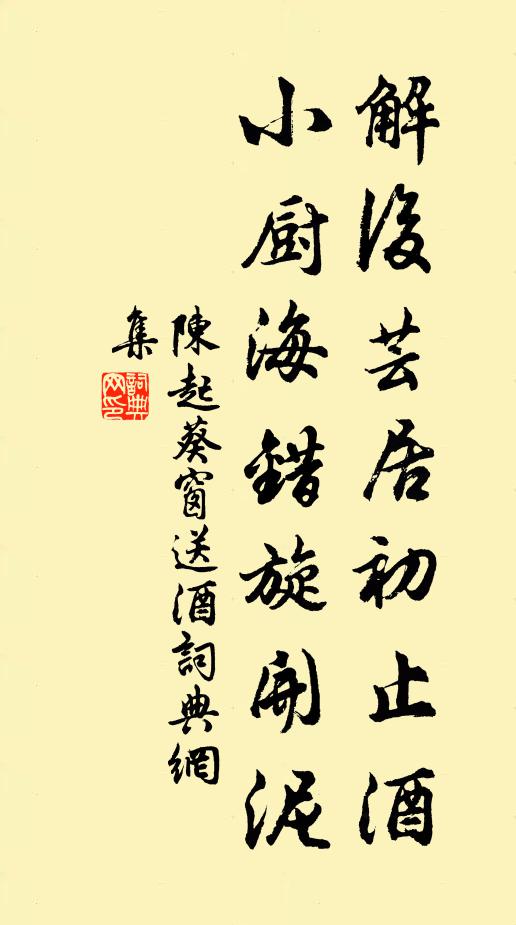 解後芸居初止酒
小厨海錯旋開泥
陳起葵窗送酒詞典網
集
詞典
网印